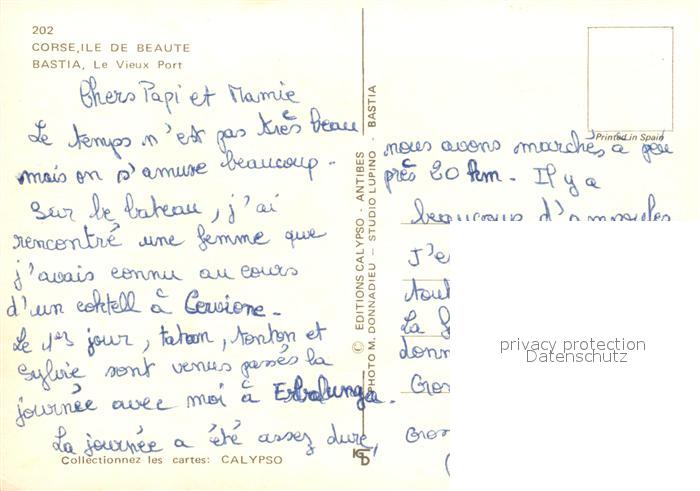 202
CORSE, ILE DE BEAUTE
BASTIA, Le Vieux Port
Chers Papi et Mamie
Le temps n'est pas très beau
mais on s'amuse beaucoup.
Sur le bateau, j'ai
rencontré une femme que
j'avais connu au cours
d'un coktell à Cervione.
Le 1er jour, tatan, tonton et
Sylvie sont venus passés la
journée avec moi à Erbalunga.
La journée a été assez dure,
Collectionnez les cartes: CALYPSO
© EDITIONS CALYPSO - ANTIBES
PHOTO M. DONNADIEU - STUDIO LUPINO - BASTIA
Printed in Spain
nous avons marchés à peu
près 20 km. Il y a
beaucoup d'ampoules
J'e
tout
La
donn
Gros
Gros
(
privacy protection
Datenschutz